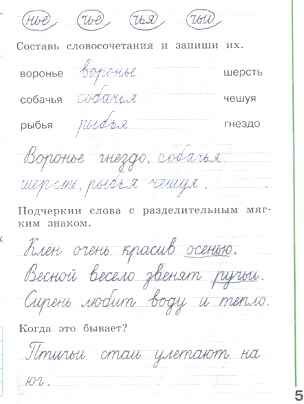 нье чье чья чьи
Составь словосочетания и запиши их.
воронье воронье шерсть
собачья собачья чешуя
рыбья рыбья гнездо
Воронье гнездо, собачья
шерсть, рыбья чешуя.
Подчеркни слова с разделительным мяг-
ким знаком.
Клён очень красив осенью.
Весной весело звенят ручьи.
Сирень любит воду и тепло.
Когда это бывает?
Птичьи стаи улетают на
юг.
5